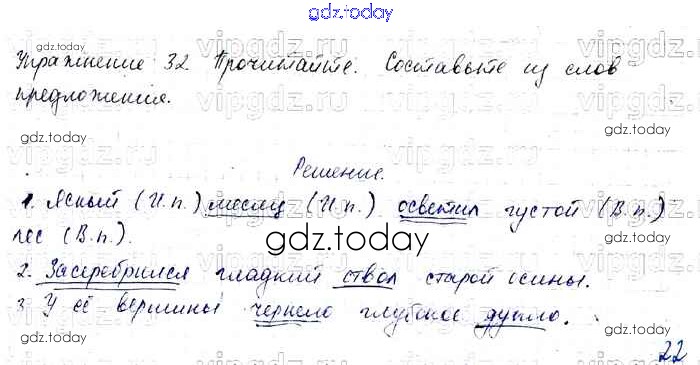 gdz.today
Упражнение 32. Прочитайте. Составьте из слов
предложения.
gdz.today
Решение.
1. Ясный (И.п.) месяц (И.п.) осветил густой (В.п.)
лес (В.п.).
gdz.today
2. Засеребрился гладкий ствол старой осины.
3. У её вершины чернело глубокое дупло.
gdz.today
22